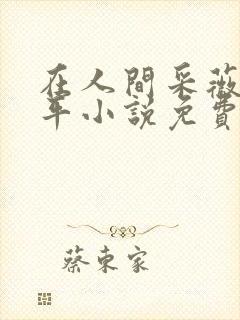 在人間采薇
年小說免費
蔡東家